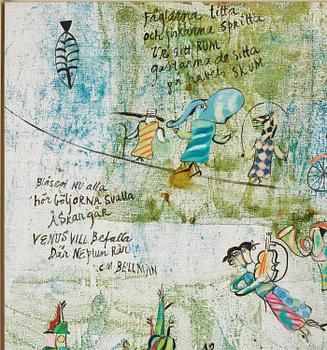 Fåglarna titta
och fiskarna spritta
Ur sitt RUM
gastarna de sitta
på havets SKUM
Blåsen NU alla
hör böljORNA svalla
ÅSkan GåR
VENUS VILL Befalla
Där Neptun Rår
C M BELLMAN